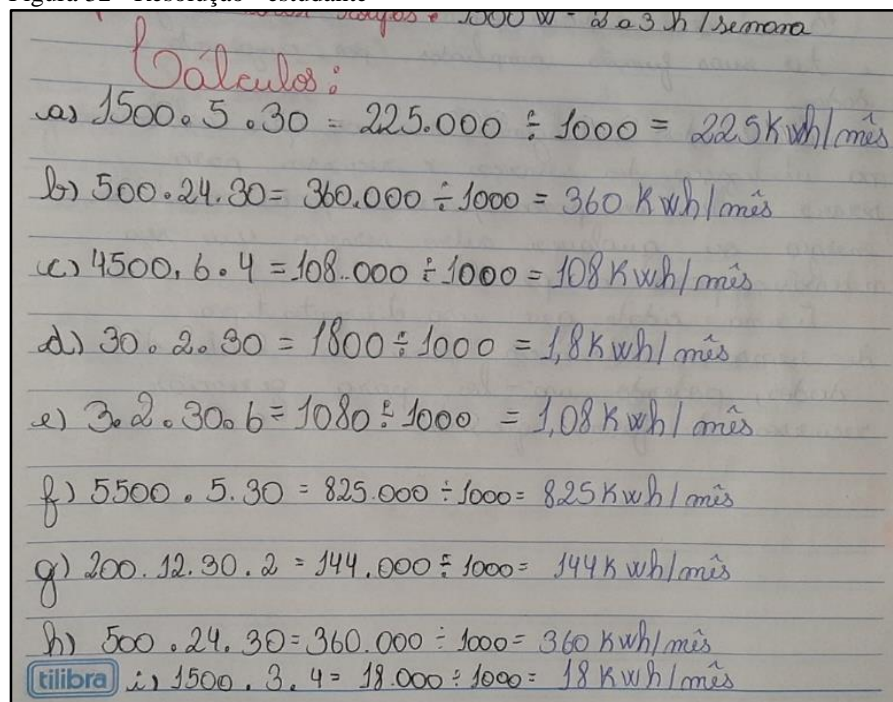 Figura 32 - Resolução - estudante
1500 W - 2 a 3 h / semana
Cálculos:
a) 1500 . 5 . 30 = 225.000 ÷ 1000 = 225 Kwh/mês
b) 500 . 24 . 30 = 360.000 ÷ 1000 = 360 Kwh/mês
c) 4500 . 6 . 4 = 108.000 ÷ 1000 = 108 Kwh/mês
d) 30 . 2 . 30 = 1800 ÷ 1000 = 1,8 Kwh/mês
e) 3 . 2 . 30 . 6 = 1080 ÷ 1000 = 1,08 Kwh/mês
f) 5500 . 5 . 30 = 825.000 ÷ 1000 = 825 Kwh/mês
g) 200 . 12 . 30 . 2 = 144.000 ÷ 1000 = 144 Kwh/mês
h) 500 . 24 . 30 = 360.000 ÷ 1000 = 360 Kwh/mês
tilibra i) 1500 . 3 . 4 = 18.000 ÷ 1000 = 18 Kwh/mês